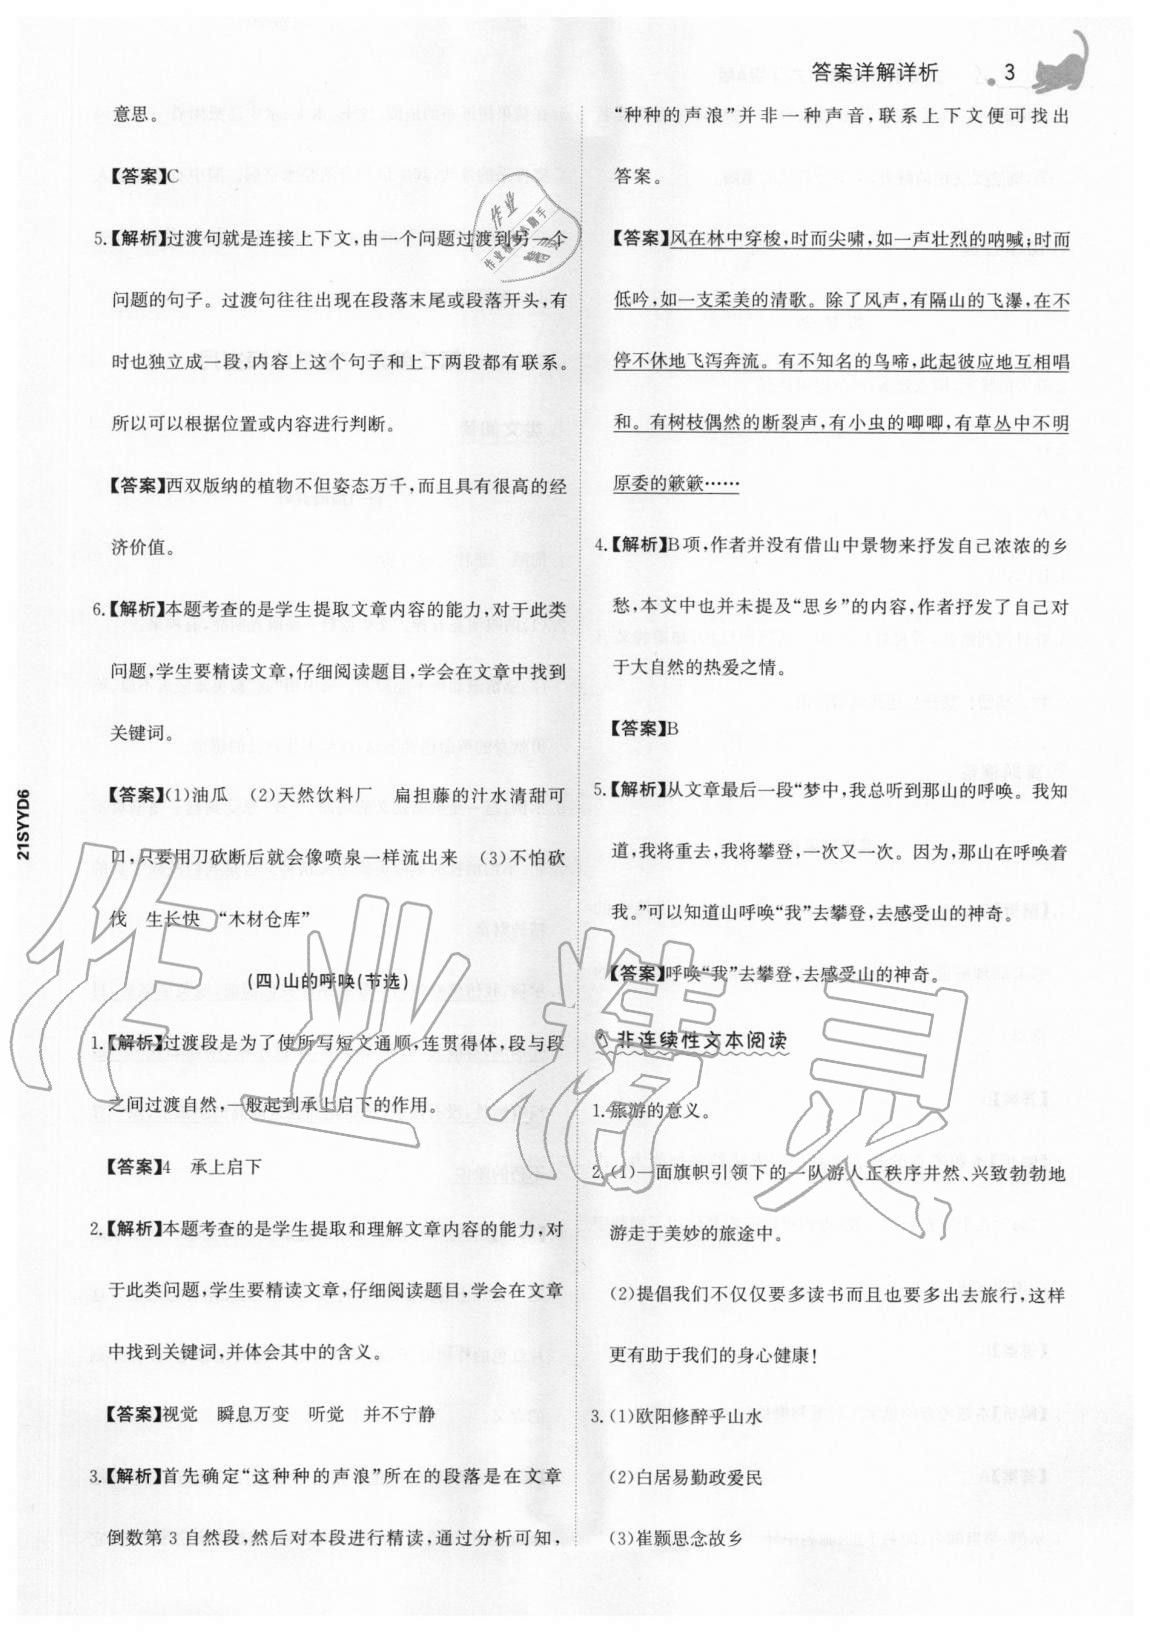 答案详解详析 3
意思。
【答案】C
5.【解析】过渡句就是连接上下文，由一个问题过渡到另一个
问题的句子。过渡句往往出现在段落末尾或段落开头，有
时也独立成一段，内容上这个句子和上下两段都有联系。
所以可以根据位置或内容进行判断。
【答案】西双版纳的植物不但姿态万千，而且具有很高的经
济价值。
6.【解析】本题考查的是学生提取文章内容的能力，对于此类
问题，学生要精读文章，仔细阅读题目，学会在文章中找到
关键词。
【答案】(1)油瓜 (2)天然饮料厂 扁担藤的汁水清甜可
口，只要用刀砍断后就会像喷泉一样流出来 (3)不怕砍
伐 生长快 “木材仓库”
(四)山的呼唤(节选)
1.【解析】过渡段是为了使所写短文通顺，连贯得体，段与段
之间过渡自然，一般起到承上启下的作用。
【答案】4 承上启下
2.【解析】本题考查的是学生提取和理解文章内容的能力，对
于此类问题，学生要精读文章，仔细阅读题目，学会在文章
中找到关键词，并体会其中的含义。
【答案】视觉 瞬息万变 听觉 并不宁静
3.【解析】首先确定“这种种的声浪”所在的段落是在文章
倒数第 3 自然段，然后对本段进行精读，通过分析可知，
“种种的声浪”并非一种声音，联系上下文便可找出
答案。
【答案】风在林中穿梭，时而尖啸，如一声壮烈的呐喊；时而
低吟，如一支柔美的清歌。除了风声，有隔山的飞瀑，在不
停不休地飞泻奔流。有不知名的鸟啼，此起彼应地互相唱
和。有树枝偶然的断裂声，有小虫的唧唧，有草丛中不明
原委的簌簌……
4.【解析】B项，作者并没有借山中景物来抒发自己浓浓的乡
愁，本文中也并未提及“思乡”的内容，作者抒发了自己对
于大自然的热爱之情。
【答案】B
5.【解析】从文章最后一段“梦中，我总听到那山的呼唤。我知
道，我将重去，我将攀登，一次又一次。因为，那山在呼唤着
我。”可以知道山呼唤“我”去攀登，去感受山的神奇。
【答案】呼唤“我”去攀登，去感受山的神奇。
非连续性文本阅读
1.旅游的意义。
2.(1)一面旗帜引领下的一队游人正秩序井然、兴致勃勃地
游走于美妙的旅途中。
(2)提倡我们不仅仅要多读书而且也要多出去旅行，这样
更有助于我们的身心健康！
3.(1)欧阳修醉乎山水
(2)白居易勤政爱民
(3)崔颢思念故乡
21SYYD6
作业精灵